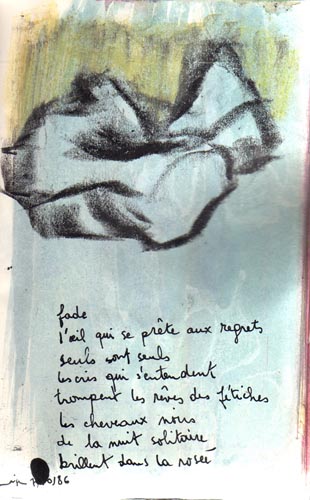 fade
l'œil qui se prête aux regrets
seuls sont seuls
les cris qui s'entendent
trompent les rêves des fétiches
les cheveaux noirs
de la nuit solitaire
brillent dans la rosée
/86